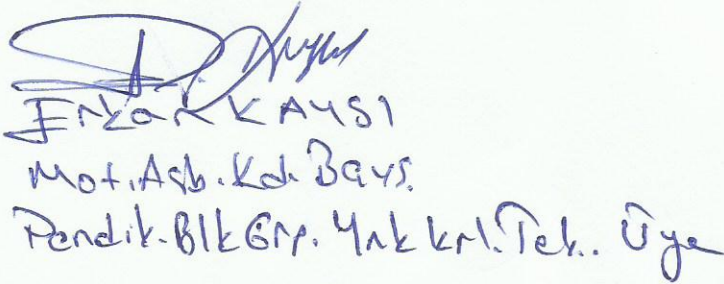 Erkan KAYSI
Mot. Asb. Kd. Bçvş.
Pendik. Blk Grp. Ynk krl. Tek.. Üye